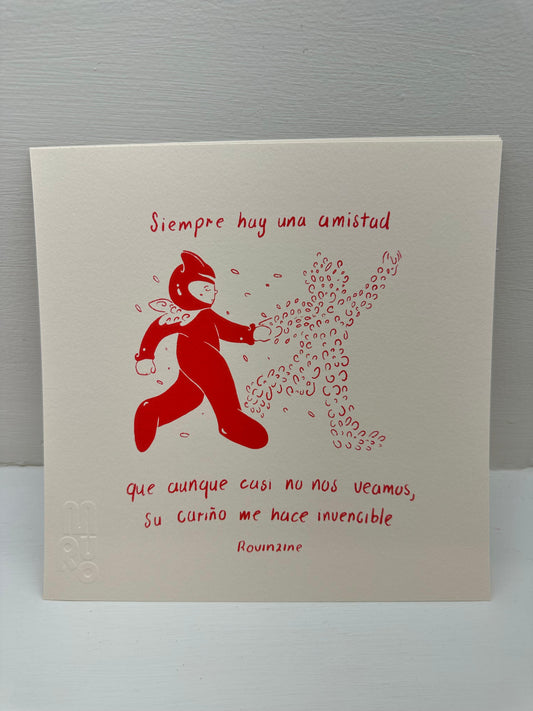 Siempre hay una amistad
que aunque casi no nos veamos,
su cariño me hace invencible
Rovinzine
MURO